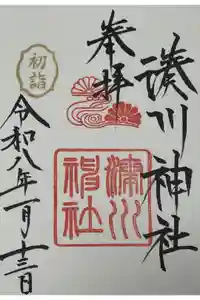 湊川神社
奉拝
初詣
湊川
神社
令和八年一月十三日